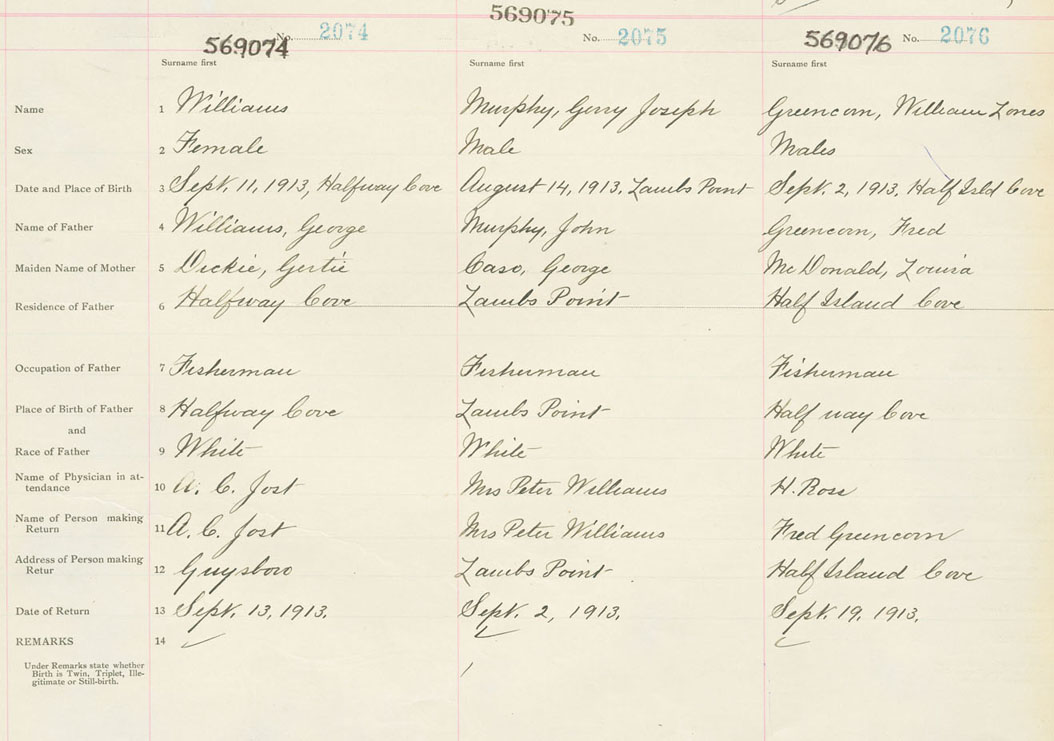 569075
569074 No. 2074 No. 2075 569076 No. 2076
Surname first Surname first Surname first
Name 1 Williams Murphy, Gerry Joseph Greencorn, William Lones
Sex 2 Female Male Males
Date and Place of Birth 3 Sept. 11, 1913, Halfway Cove August 14, 1913. Lambs Point Sept. 2, 1913. Half Isld Cove
Name of Father 4 Williams, George Murphy, John Greencorn, Fred
Maiden Name of Mother 5 Dickie, Gertie Caso, George McDonald, Louisa
Residence of Father 6 Halfway Cove Lambs Point Half Island Cove
Occupation of Father 7 Fisherman Fisherman Fisherman
Place of Birth of Father 8 Halfway Cove Lambs Point Half way Cove
and
Race of Father 9 White White White
Name of Physician in at-
tendance 10 A. C. Jost Mrs Peter Williams H. Ross
Name of Person making
Return 11 A. C. Jost Mrs Peter Williams Fred Greencorn
Address of Person making
Retur 12 Guysboro Lambs Point Half Island Cove
Date of Return 13 Sept. 13, 1913. Sept. 2, 1913. Sept. 19, 1913.
REMARKS 14
Under Remarks state whether
Birth is Twin, Triplet, Ille-
gitimate or Still-birth.